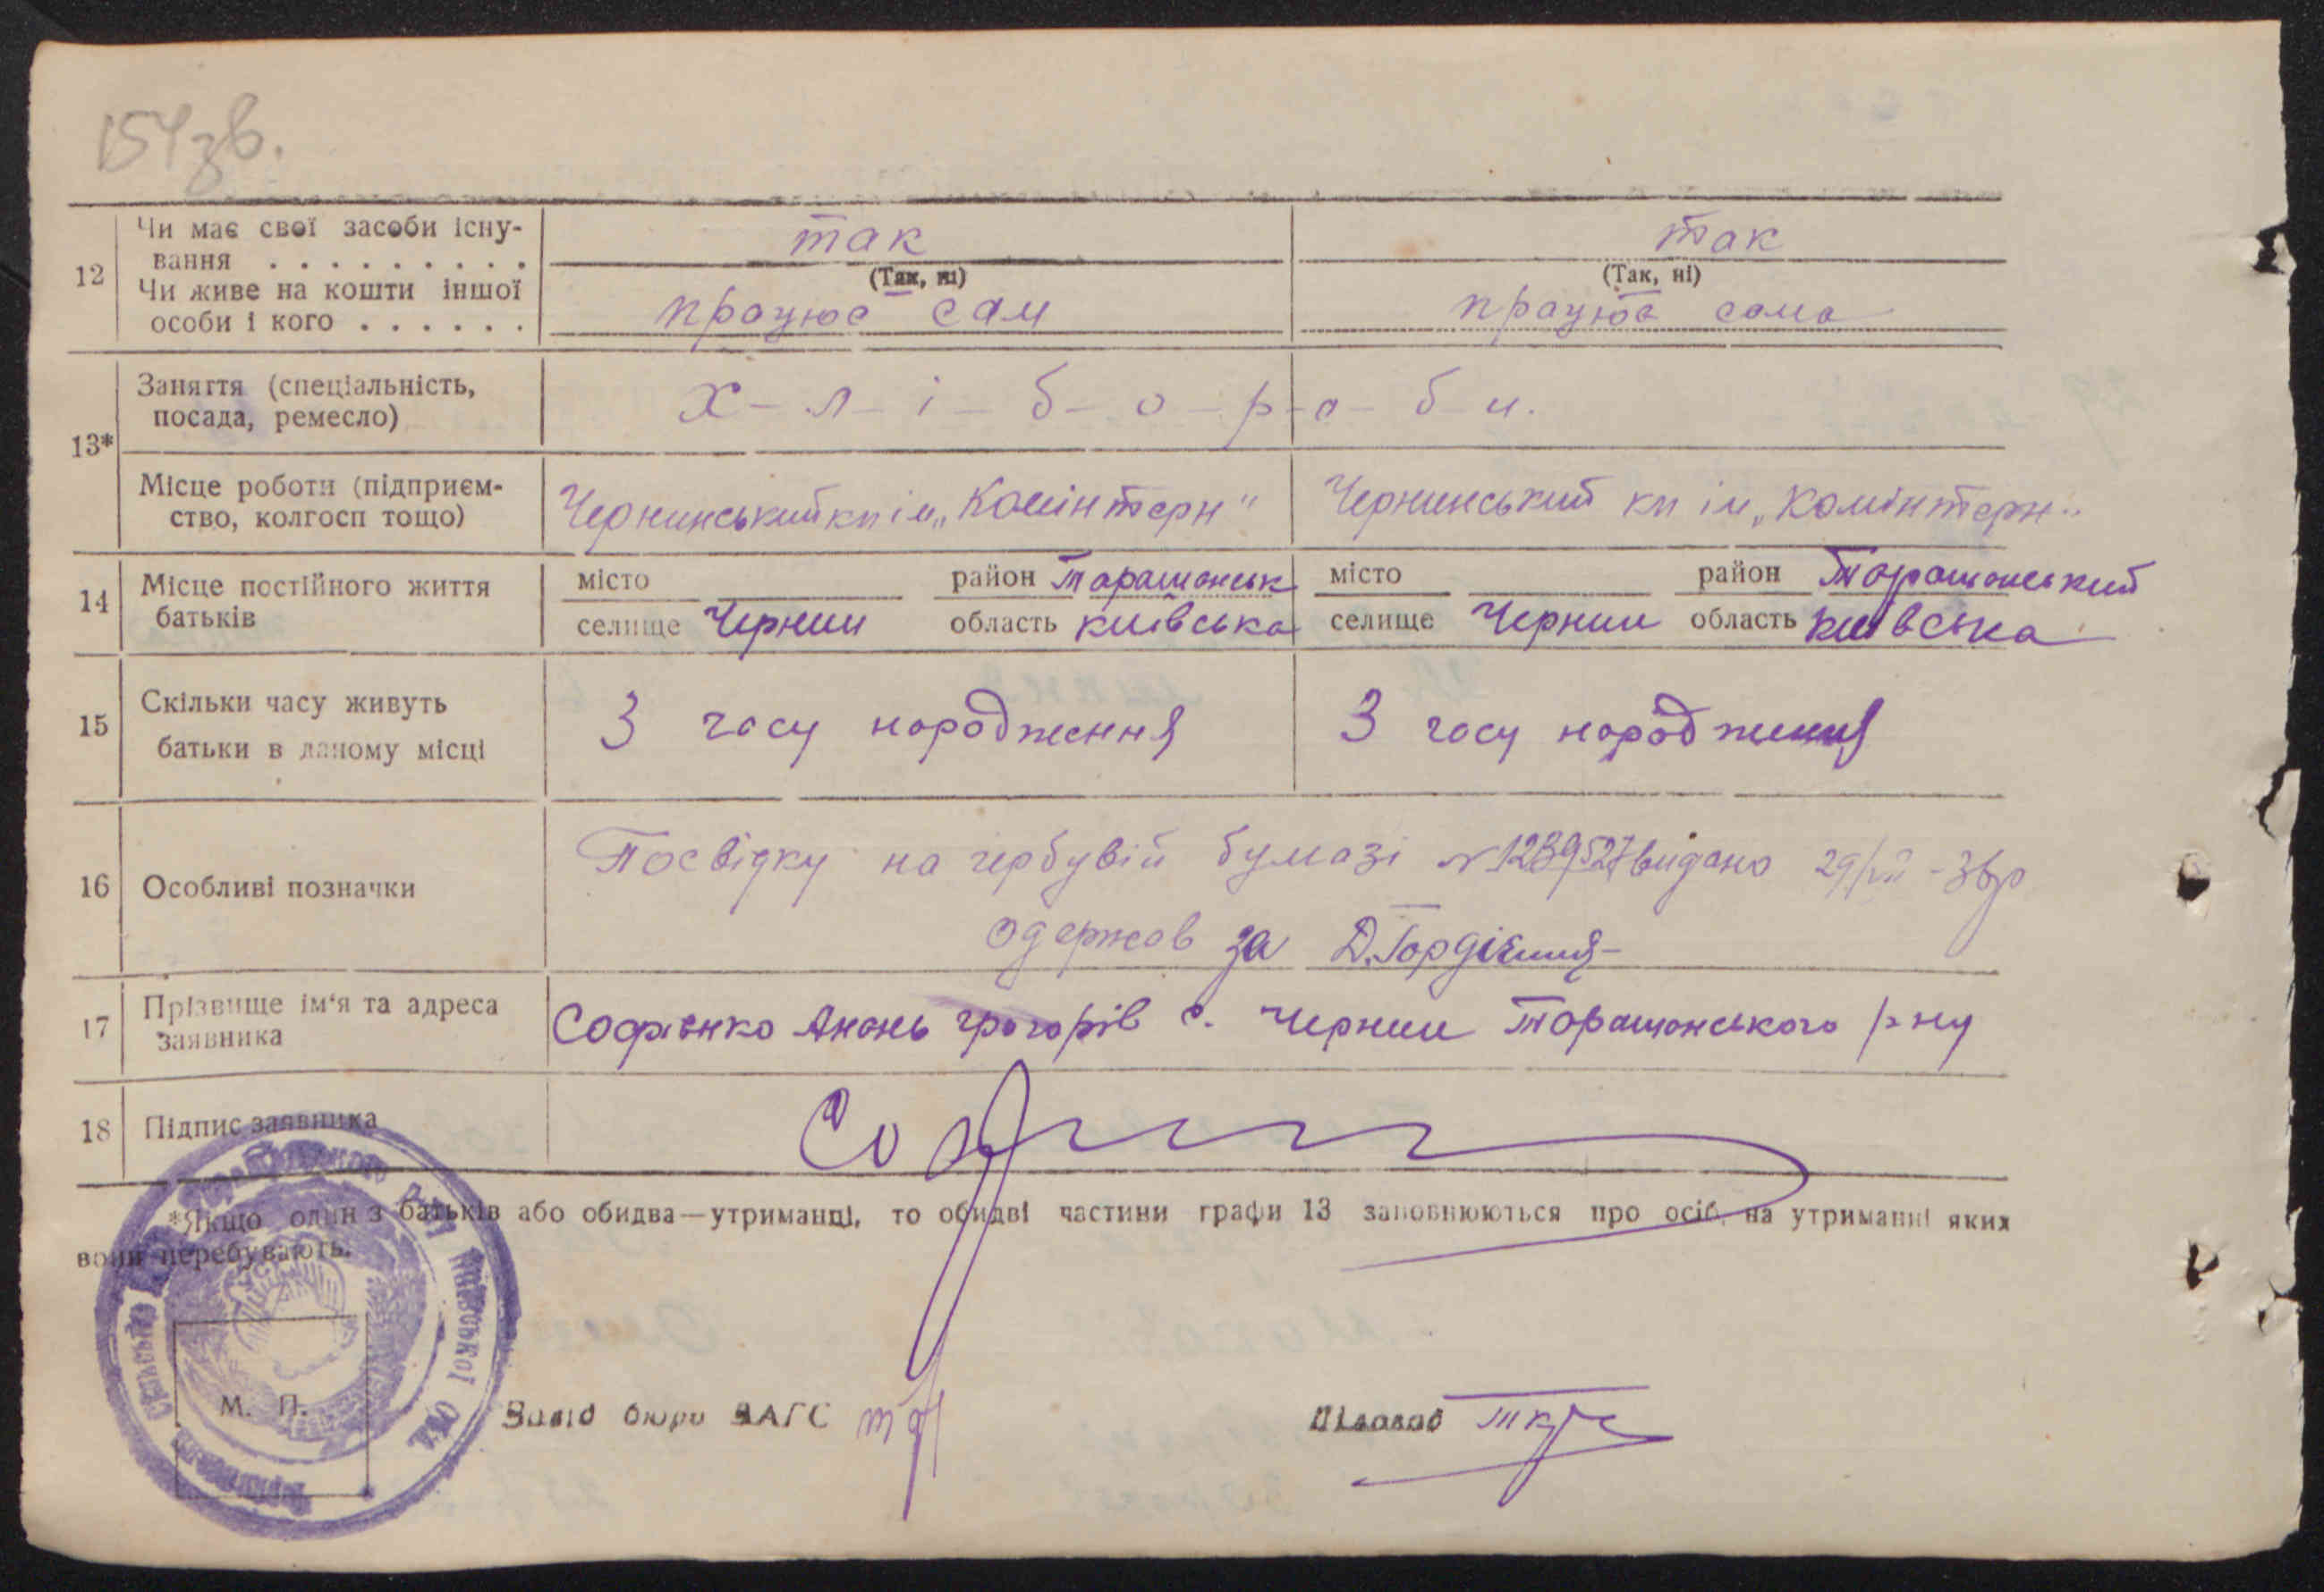 154зв.
12 Чи має свої засоби існу-
вання . . . . . . . . . так так
(Так, ні) (Так, ні)
Чи живе на кошти іншої
особи і кого . . . . . . працює сам працює сама
13* Заняття (спеціальність,
посада, ремесло) х-л-і-б-о-р-о-б-и.
Місце роботи (підприєм-
ство, колгосп тощо) Чернинський кп ім „Комінтерн" Чернинський кп ім „Комінтерн"
14 Місце постійного життя
батьків
місто район Таращанськ місто район Таращанський
селище Чернин область київська селище Чернин область київська
15 Скільки часу живуть
батьки в даному місці З часу народження З часу народження
16 Особливі позначки
Посвідку на гербувій бумазі № 1289527 видано 29/VII-36р
одержав за Д.Гордієнця
17 Прізвище ім'я та адреса
заявника Софієнко Анань грогорів с. Чернин Таращанського р-ну
18 Підпис заявника Соф
*Якщо один з батьків або обидва—утриманці, то обидві частини графи 13 заповнюються про осіб, на утриманні яких
вони перебувають.
Київської Обл.
М. П.
Завід бюро ЗАГС Діловод